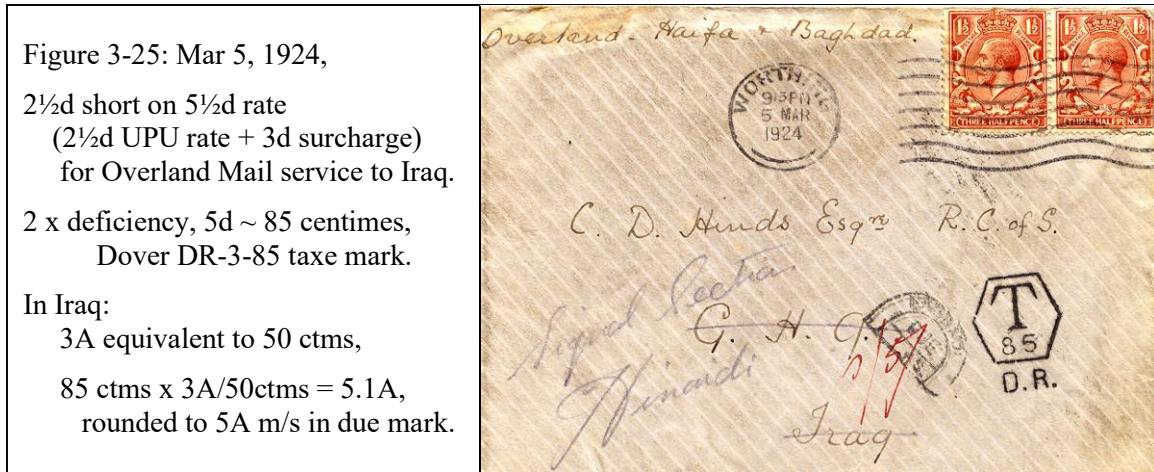 Figure 3-25: Mar 5, 1924,
2½d short on 5½d rate
(2½d UPU rate + 3d surcharge)
for Overland Mail service to Iraq.
2 x deficiency, 5d ~ 85 centimes,
Dover DR-3-85 taxe mark.
In Iraq:
3A equivalent to 50 ctms,
85 ctms x 3A/50ctms = 5.1A,
rounded to 5A m/s in due mark.
Overland - Haifa & Baghdad.
1½ 1½ 1½ 1½
(THREE HALFPENCE) (THREE HALFPENCE)
WORTHING
9 15 PM
5 MAR
1924
C. D. Hinds Esqre R. C. of S.
Signal Section
G. H. Q.
Hinaidi
Iraq
T
85
D.R.